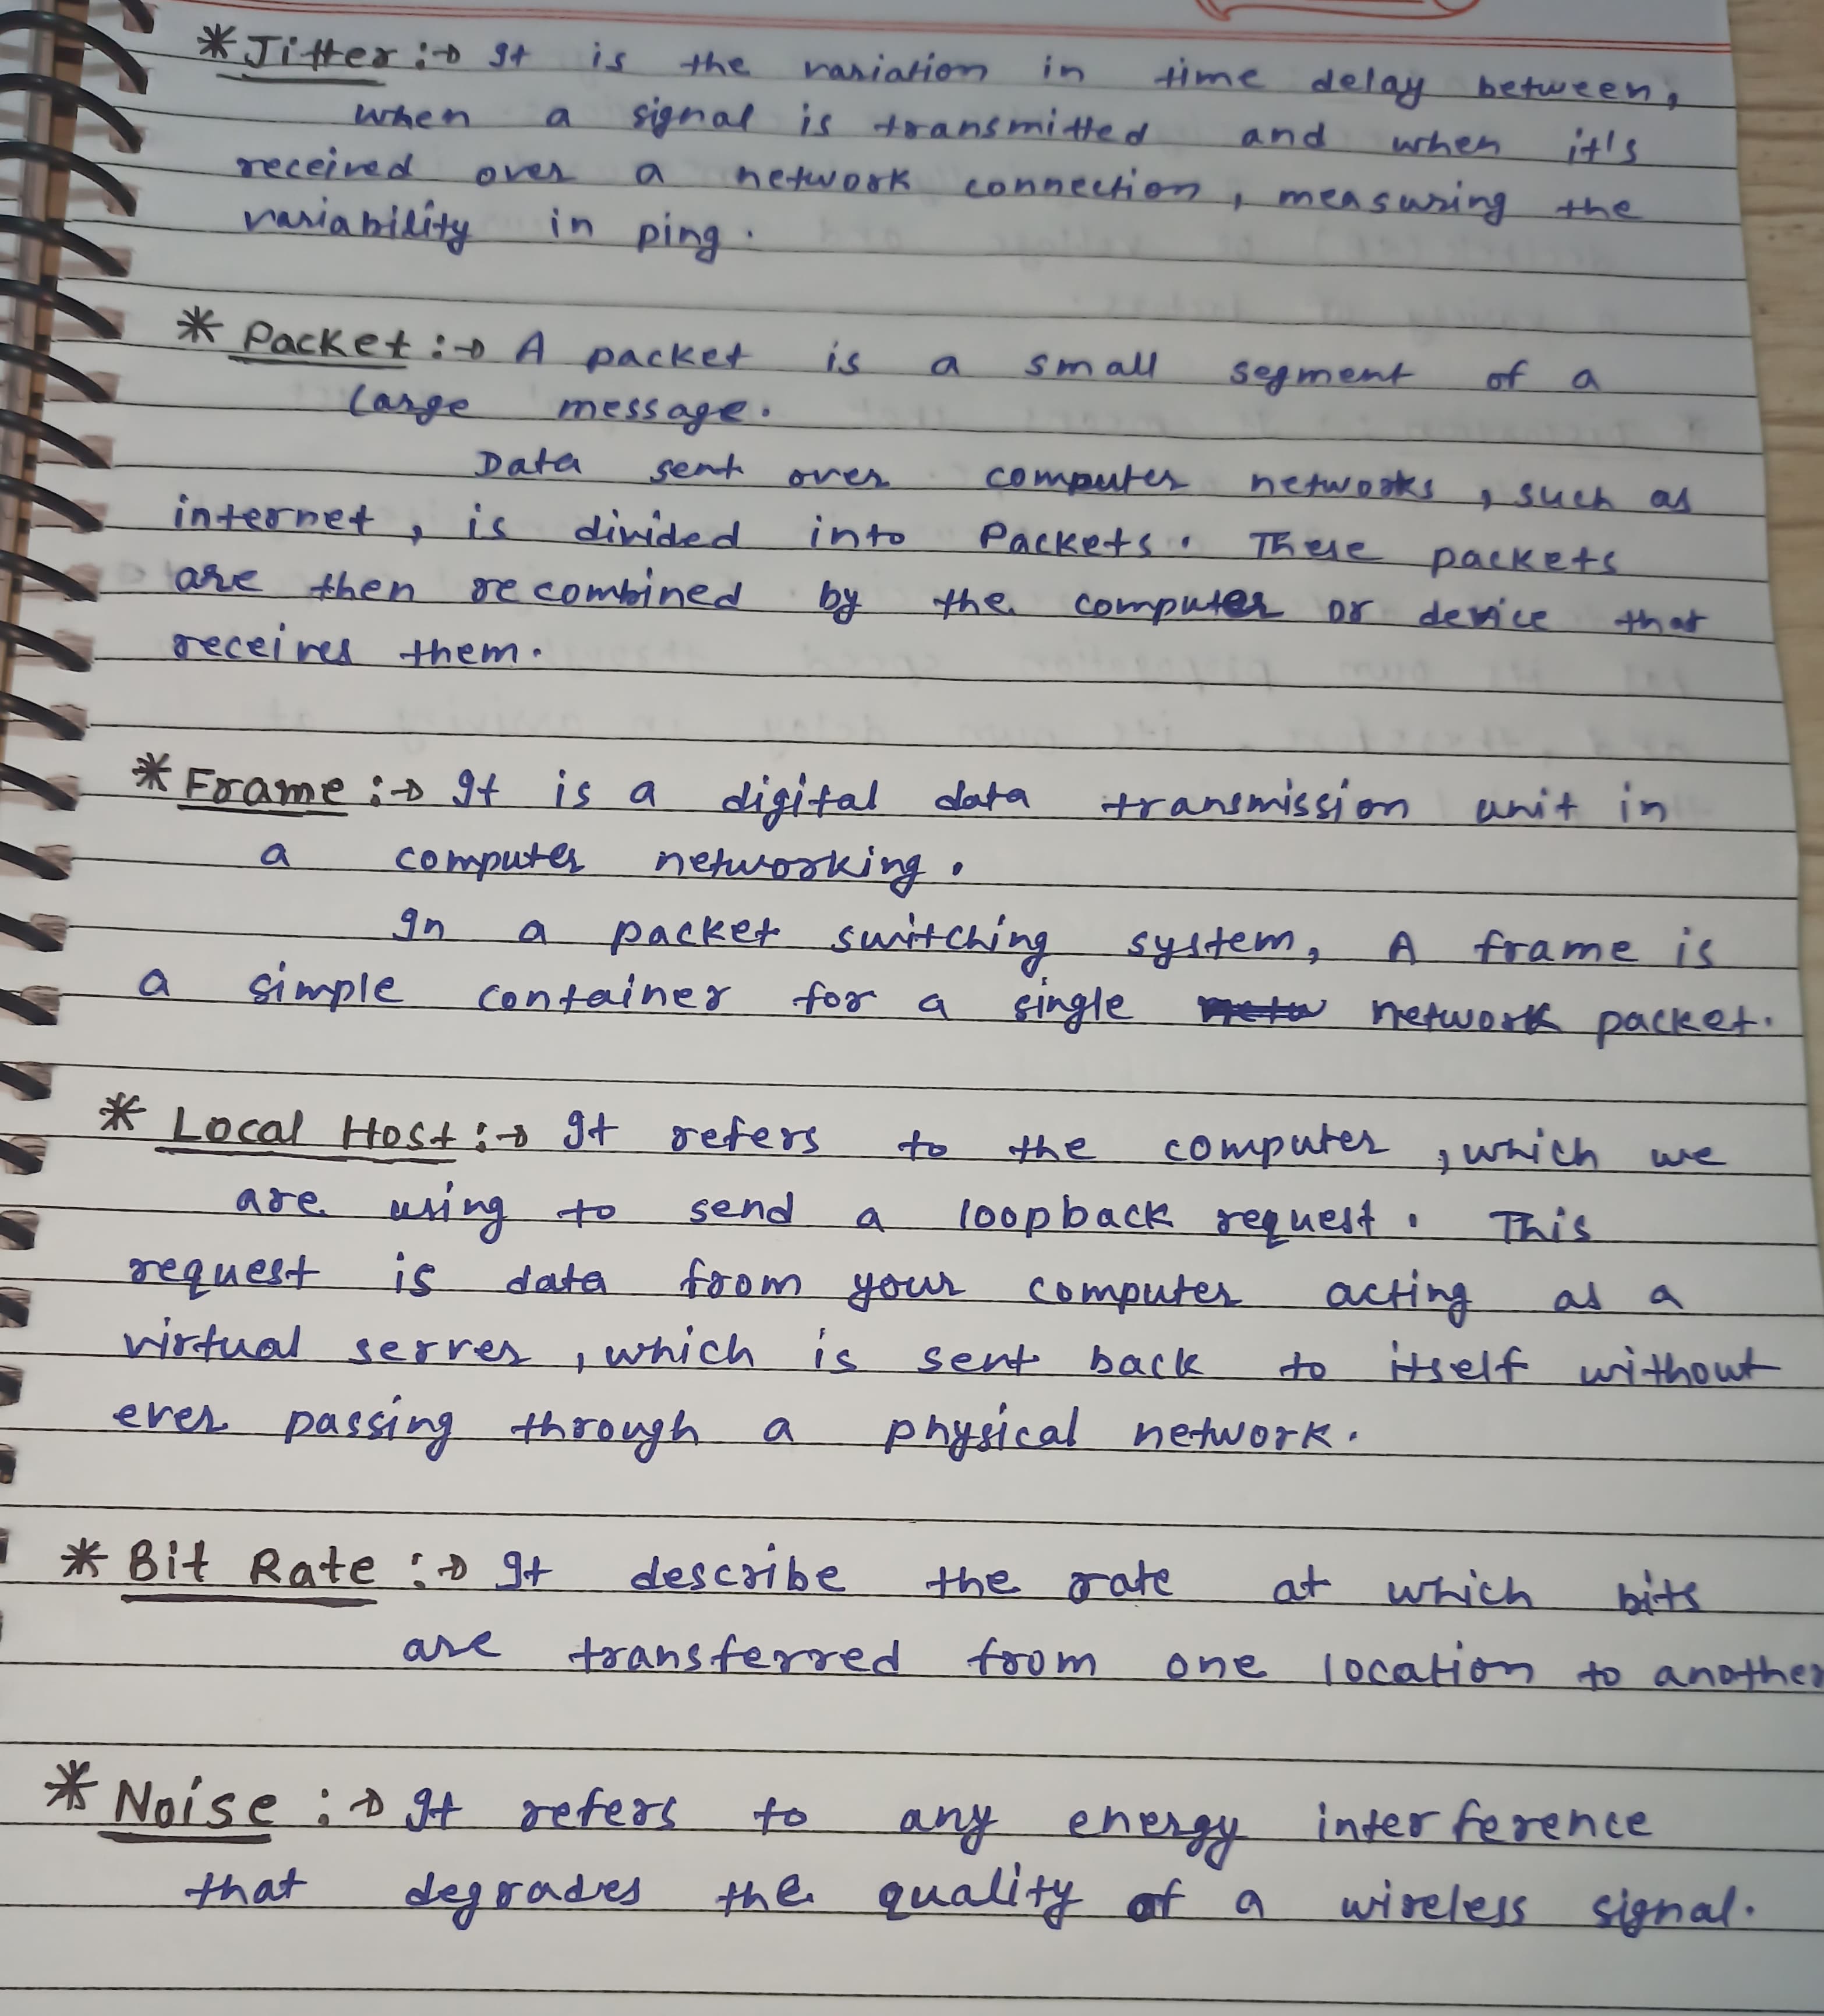 * Jitter :→ It is the variation in time delay between,
when a signal is transmitted and when it's
received over a network connection, measuring the
variability in ping.
* Packet :→ A packet is a small segment of a
large message.
Data sent over computer networks, such as
internet, is divided into Packets. These packets
are then recombined by the computer or device that
receives them.
* Frame :→ It is a digital data transmission unit in
a computer networking.
In a packet switching system, A frame is
a simple container for a single network packet.
* Local Host :→ It refers to the computer, which we
are using to send a loopback request. This
request is data from your computer acting as a
virtual server, which is sent back to itself without
ever passing through a physical network.
* Bit Rate :→ It describe the rate at which bits
are transferred from one location to another
* Noise :→ It refers to any energy interference
that degrades the quality of a wireless signal.